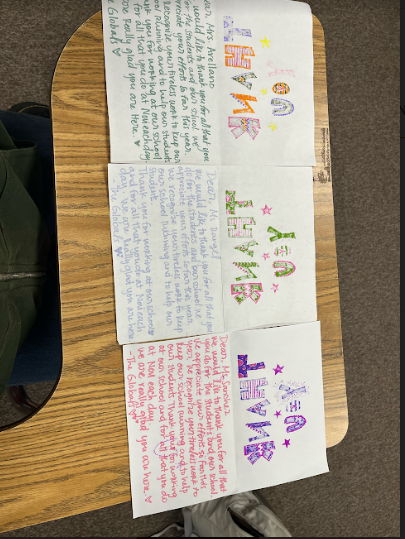 THANK
YOU
Dear, Mrs Arellano
we would like to thank you for all that you
do for the students and our school. We
appreciate your efforts so far this year.
We recognize your tireless work to keep our
school running and to help our students
Thank you for working at our school
and for all that you do at Nov each day
We are really glad you are here. ♥
-The Globals ♥
THANK
YOU
we would like to thank you for all that you
do for the students and our school. We
appreciate your efforts so far this year
We recognize your tireless work to keep
our school running and to help our
students.
Thank you for working at our school
and for all that you do at Nov each
day. We are really glad you are here
-The Globals
THANK
YOU
Dear, Ms Sanchez
we would like to thank you for all that
you do for the students and our school.
We appreciate your efforts so far this
year. We recognize your tireless work to
keep our school running and to help
our students. Thank you for working
at our school and for all that you do
at Nov each day.
We are really glad you are here. ♥
-The Globals ♥